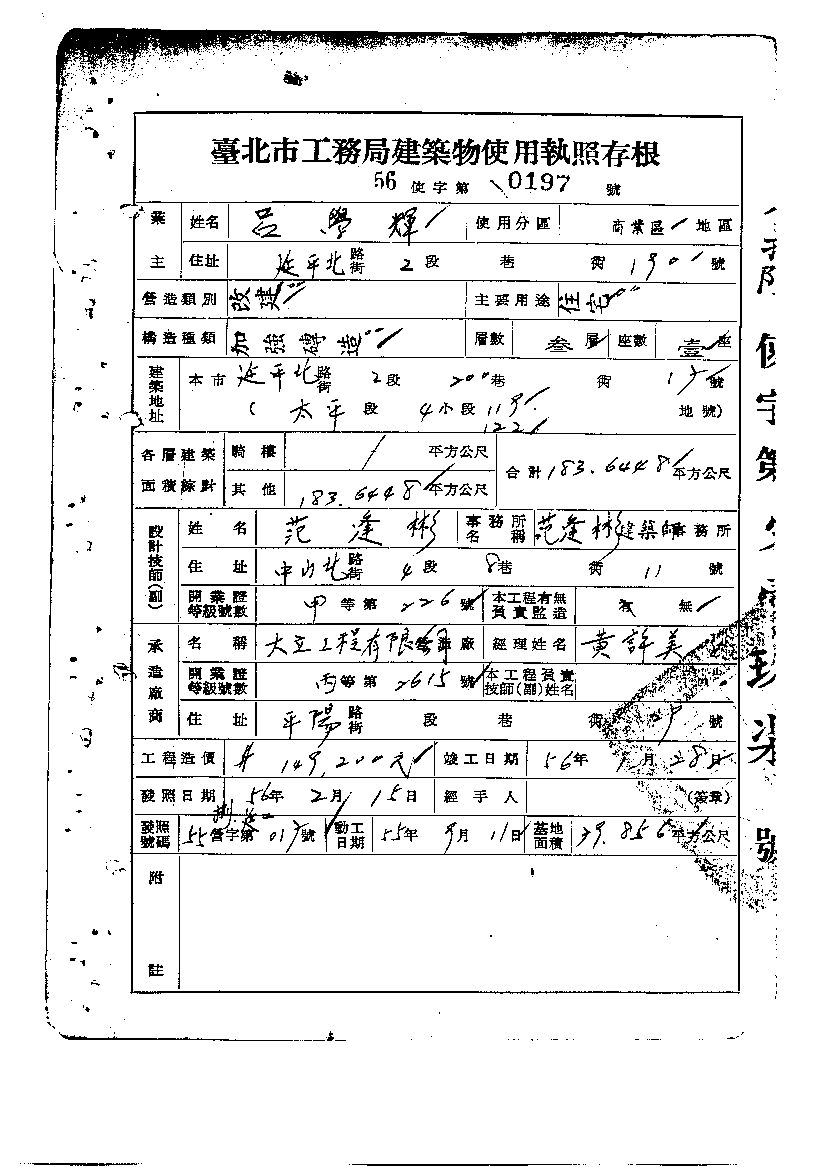 臺北市工務局建築物使用執照存根
56 使字第 0197 號
業主 姓名 呂學輝 使用分區 商業區 地區
住址 延平北 路街 2 段 巷 街 190 號
營造類別 改建 主要用途 住宅
構造種類 加強磚造 層數 叁層 座數 壹座
建築地址 本市 延平北 路街 2 段 200 巷 街 號
( 太平 段 4 小段 119 122 地號)
各層建築面積餘對 騎樓 / 平方公尺 合計 183.6448 平方公尺
其他 183.6448 平方公尺
設計技師(副) 姓名 范逢彬 事務所名稱 范逢彬建築師事務所
住址 中山北 路街 4 段 8 巷 街 11 號
開業證等級號數 甲 等第 226 號 本工程有無負責監造 有 無
承造廠商 名稱 大立工程有限 廠 經理姓名 黃許美
開業證等級號數 丙 等第 2615 號 本工程負責技師(副)姓名
住址 平陽 路街 段 巷 街 號
工程造價 149,200元 竣工日期 56年 1月 28日
發照日期 56年 2月 15日 經手人 (簽章)
發照號碼 55 營字第 號 動工日期 55年 9月 11日 基地面積 39.856 平方公尺
附註
使字第 號